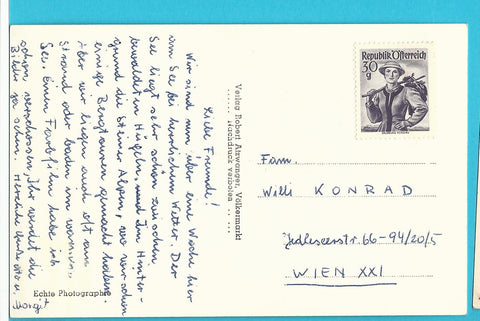 Liebe Freunde!
Wir sind nun über eine Woche hier
am See bei herrlichem Wetter. Der
See liegt sehr schön zwischen
bewaldeten Hügeln, und im Hinter-
grund die Steiner Alpen, wo wir schon
einige Bergtouren gemacht haben.
Aber wir liegen auch oft am
Strand oder baden im warmen
See. Einen Farbfilm habe ich
schon verschossen, Ihr werdet die
Bilder ja sehen. Herzliche Grüße
Margit
Echte Photographie
Verlag Robert Atzwanger, Völkermarkt
Nachdruck verboten
Republik Österreich
30
g
Fam.
Willi KONRAD
Jedleseerstr. 66-94/20/5
WIEN XXI